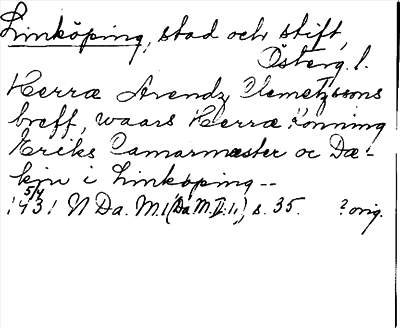 Linköping, stad och stift,
Österg. l.
Herræ Arendz Clemetzsons
breff, waars Herræ konning
Eriks Camarmester oc Dæ-
kin i Linköping --
5/4
1431 N Da. M. 1 (Da M. II: 1,) s. 35. ? orig.